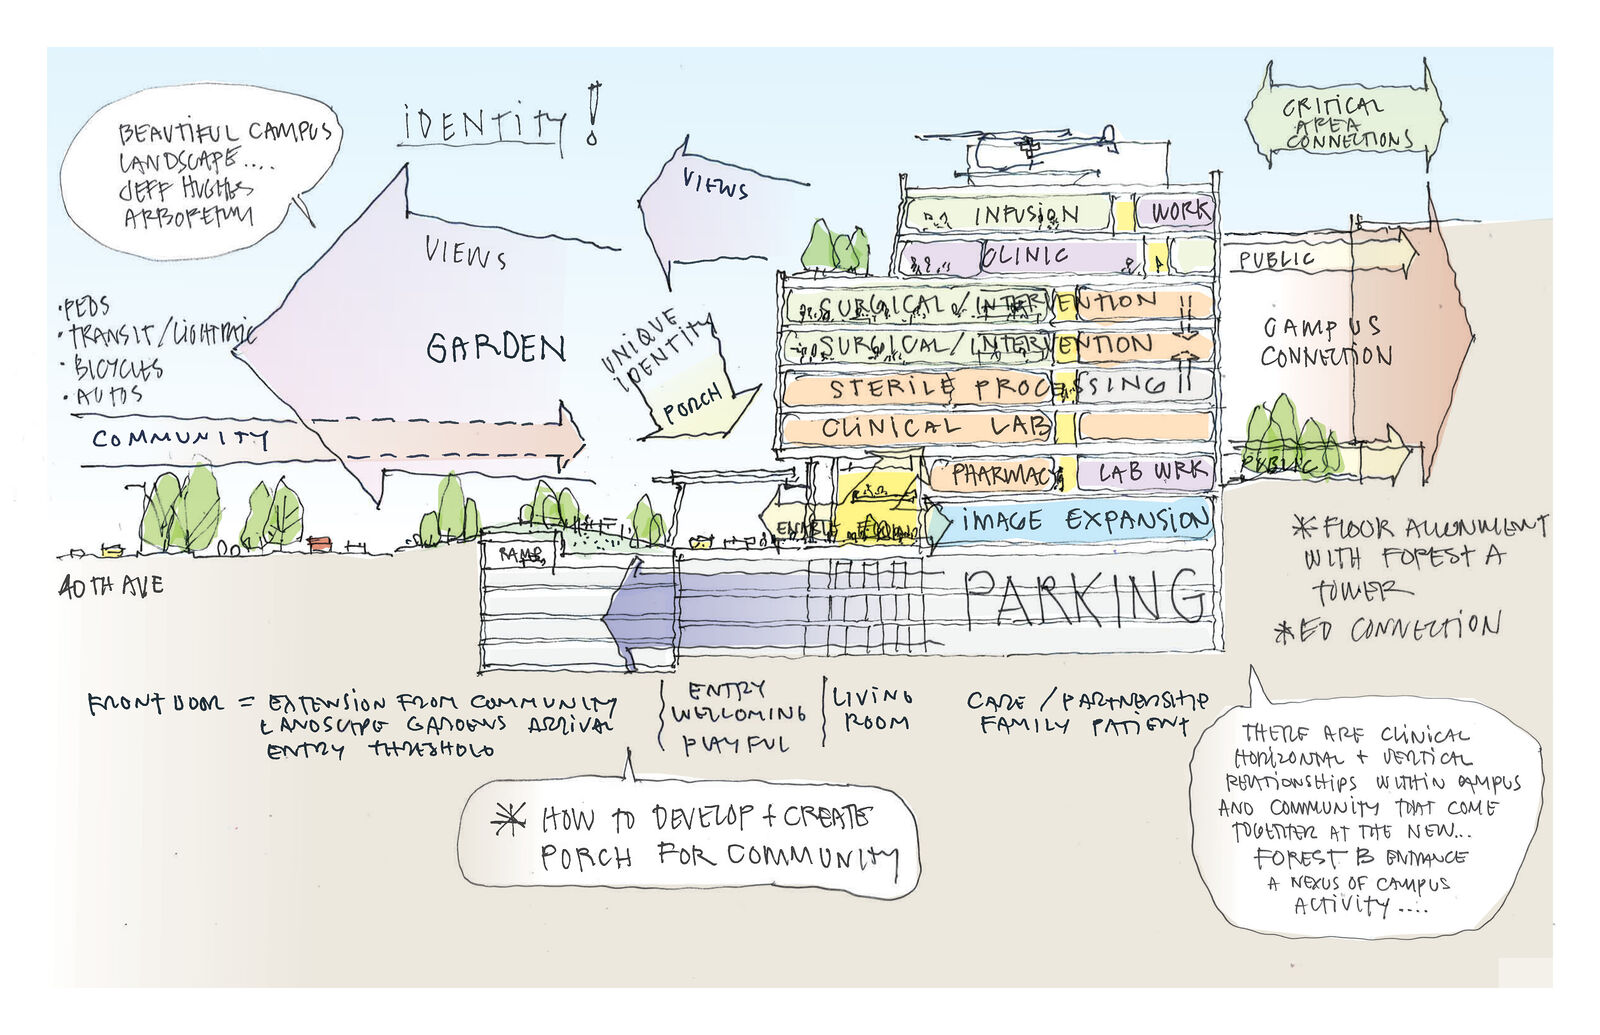 BEAUTIFUL CAMPUS
LANDSCAPE....
JEFF HUGHES
ARBORETUM
IDENTITY!
VIEWS
VIEWS
GARDEN
• PEDS
• TRANSIT/LIGHTRAIL
• BICYCLES
• AUTOS
COMMUNITY
UNIQUE
IDENTITY
PORCH
40TH AVE
RAMP
CRITICAL
AREA
CONNECTIONS
INFUSION
WORK
CLINIC
SURGICAL/INTERVENTION
SURGICAL/INTERVENTION
STERILE PROCESSING
CLINICAL LAB
PHARMACY
LAB WRK
IMAGE EXPANSION
PARKING
PUBLIC
CAMPUS
CONNECTION
PUBLIC
* FLOOR ALIGNMENT
WITH FOREST A
TOWER
* ED CONNECTION
FRONT DOOR = EXTENSION FROM COMMUNITY
LANDSCAPE GARDENS ARRIVAL
ENTRY THRESHOLD
ENTRY
WELCOMING
PLAYFUL
LIVING
ROOM
CARE / PARTNERSHIP
FAMILY PATIENT
* HOW TO DEVELOP + CREATE
PORCH FOR COMMUNITY
THERE ARE CLINICAL
HORIZONTAL + VERTICAL
RELATIONSHIPS WITHIN CAMPUS
AND COMMUNITY THAT COME
TOGETHER AT THE NEW...
FOREST B ENTRANCE
A NEXUS OF CAMPUS
ACTIVITY....